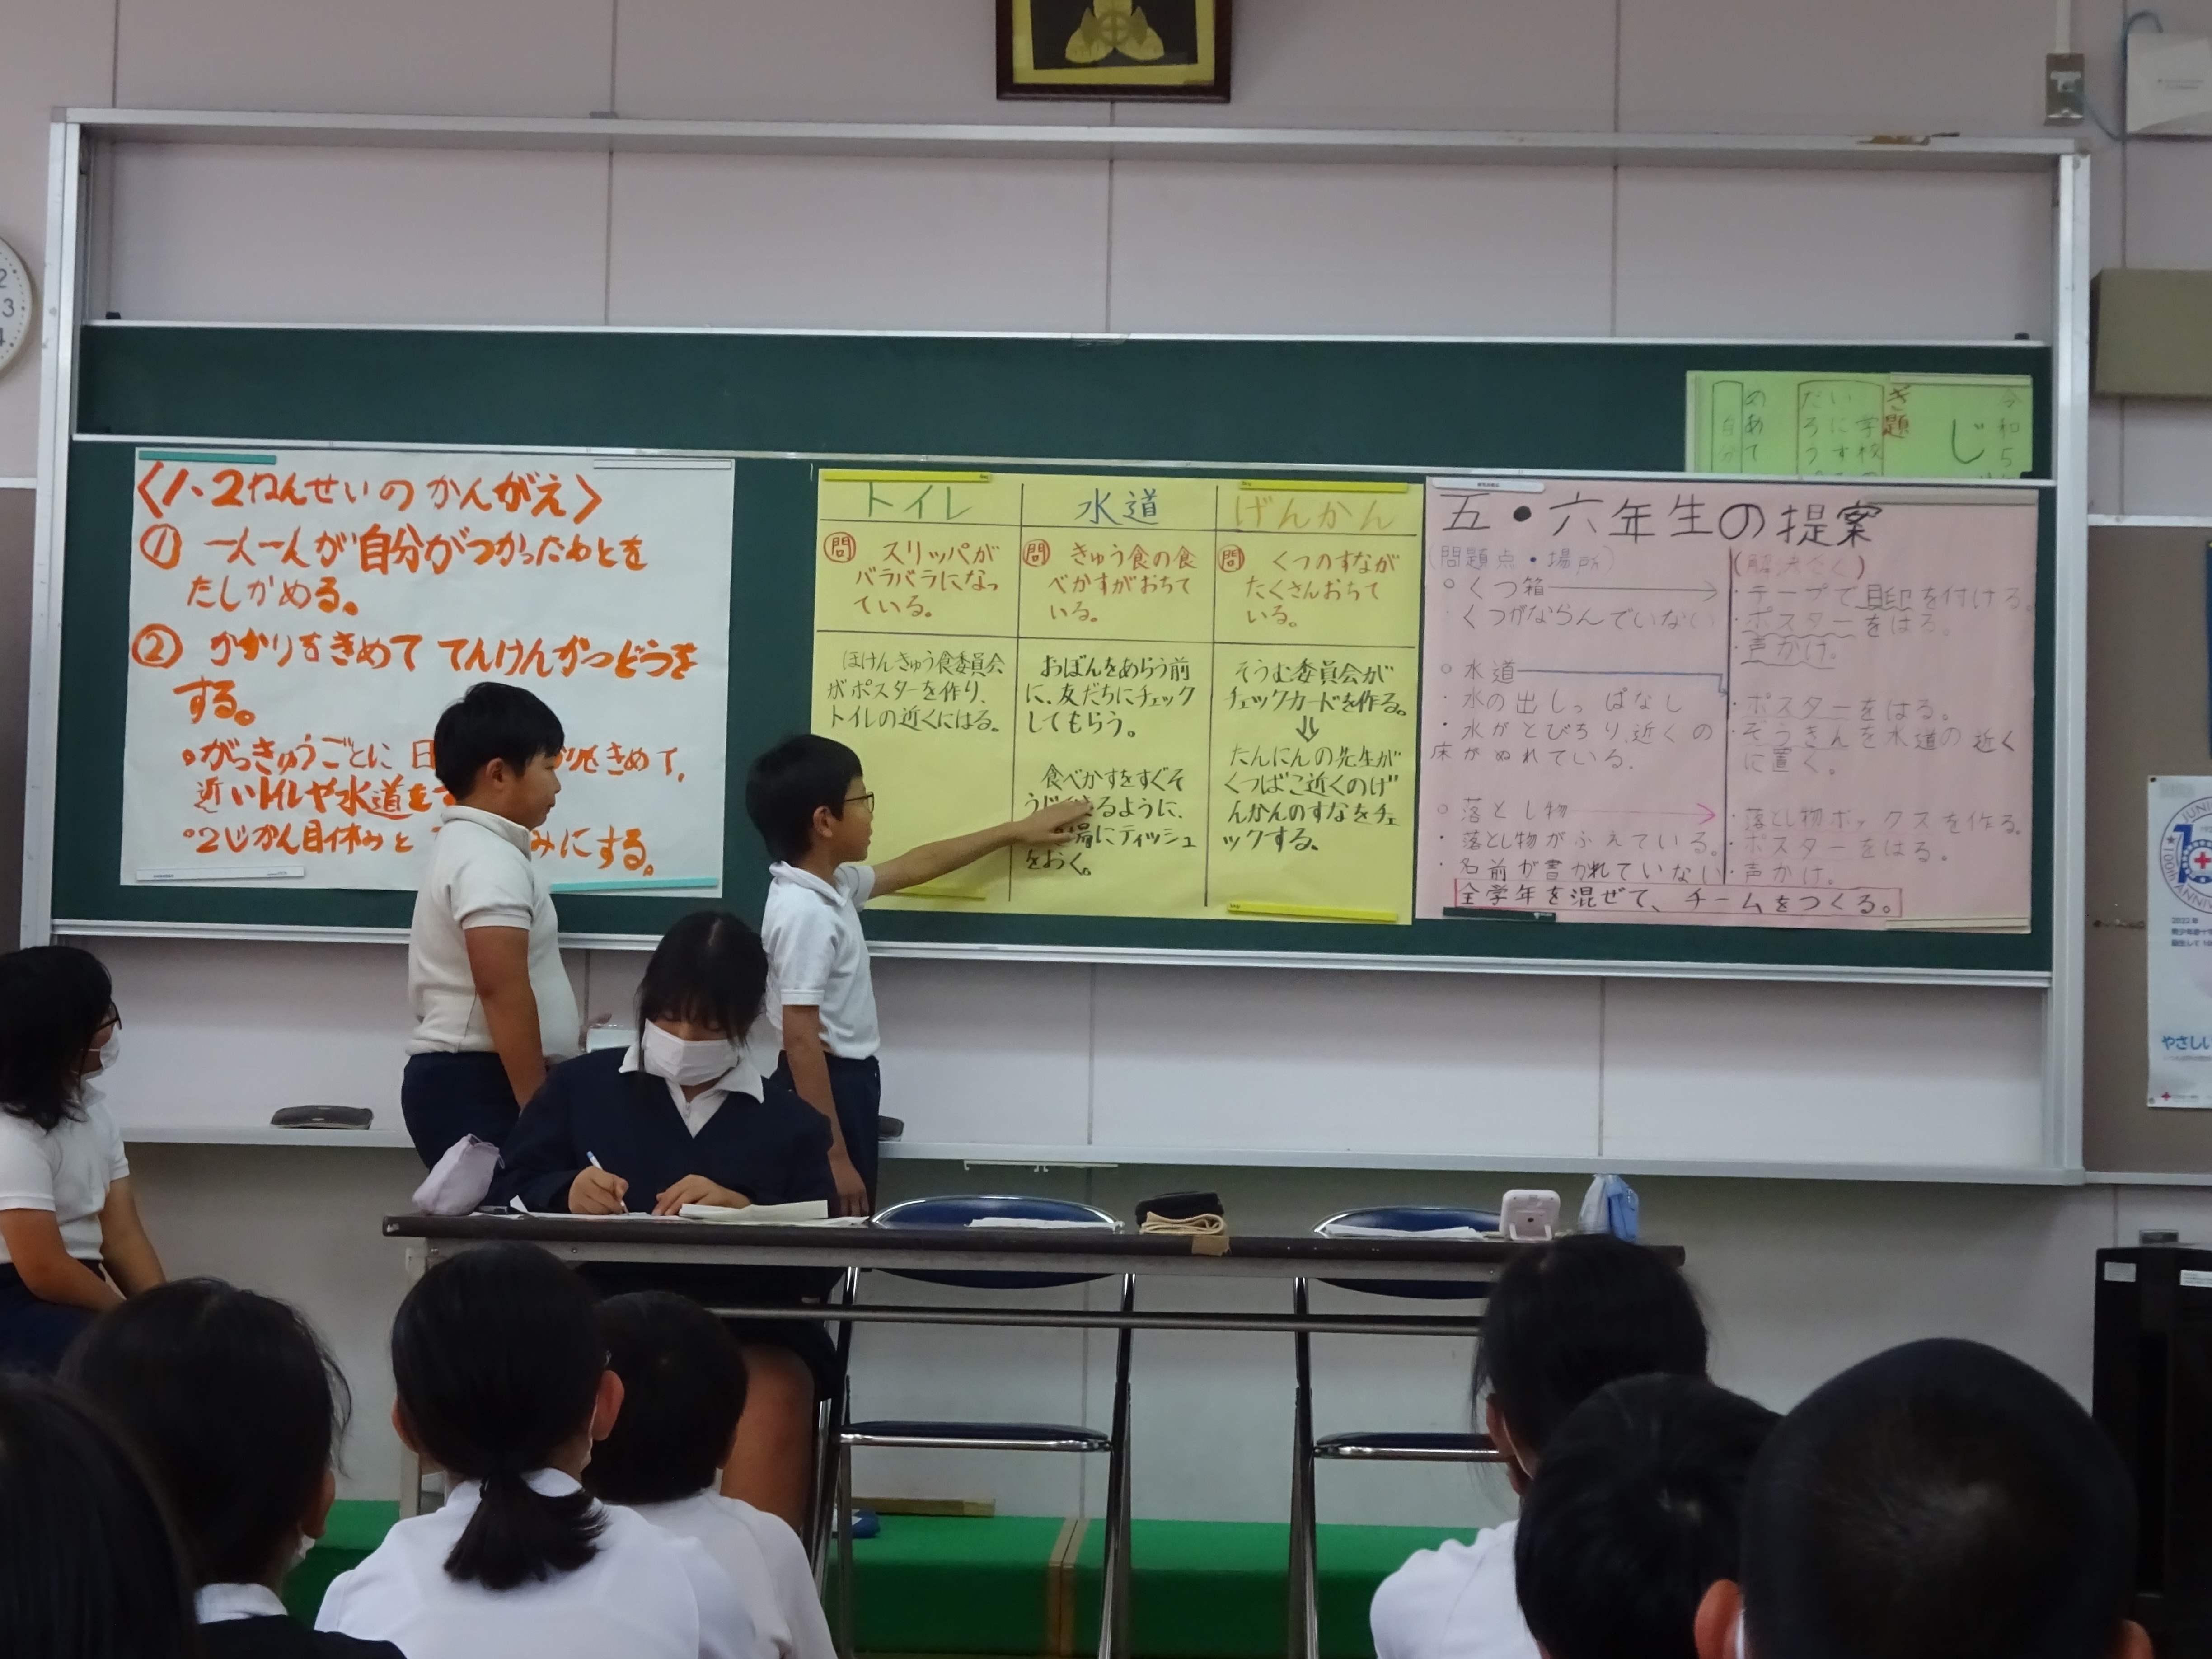 〈1、2ねんせいの かんがえ〉
① 一人一人が自分がつかったあとを
たしかめる。
② かかりをきめて てんけんかつどうを
する。
○がっきゅうごとに 日
きめて、
近いトイレや水道を
○2じかん目休みと
みにする。
トイレ
問 スリッパが
バラバラになっ
ている。
ほけんきゅう食委員会
がポスターを作り、
トイレの近くにはる。
水道
問 きゅう食の食
べかすがおちて
いる。
おぼんをあらう前
に、友だちにチェック
してもらう。
食べかすをすぐそ
るように、
にティッシュ
をおく。
げんかん
問 くつのすなが
たくさんおちて
いる。
そうむ委員会が
チェックカードを作る。
⇓
たんにんの先生が
くつばこ近くのげ
んかんのすなをチェ
ックする。
五・六年生の提案
(問題点・場所)
○くつ箱
・くつがならんでいない
○水道
・水の出しっぱなし
・水がとびちり、近くの
床がぬれている。
○落とし物
・落とし物がふえている。
・名前が書かれていない
(解決さく)
・テープで目印を付ける。
・ポスターをはる。
・声かけ。
・ポスターをはる。
・ぞうきんを水道の近く
に置く。
・落とし物ボックスを作る。
・ポスターをはる。
・声かけ。
全学年を混ぜて、チームをつくる。
令和5
じ
ぎ題
学校
いにす
だろう
めあて
自分
2022年
やさしい
2
3
4